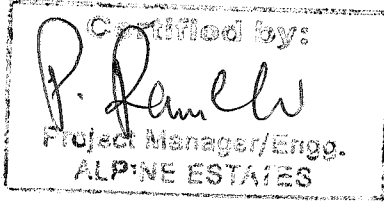 Certified by:
P.
Project Manager/Engg.
ALPINE ESTATES